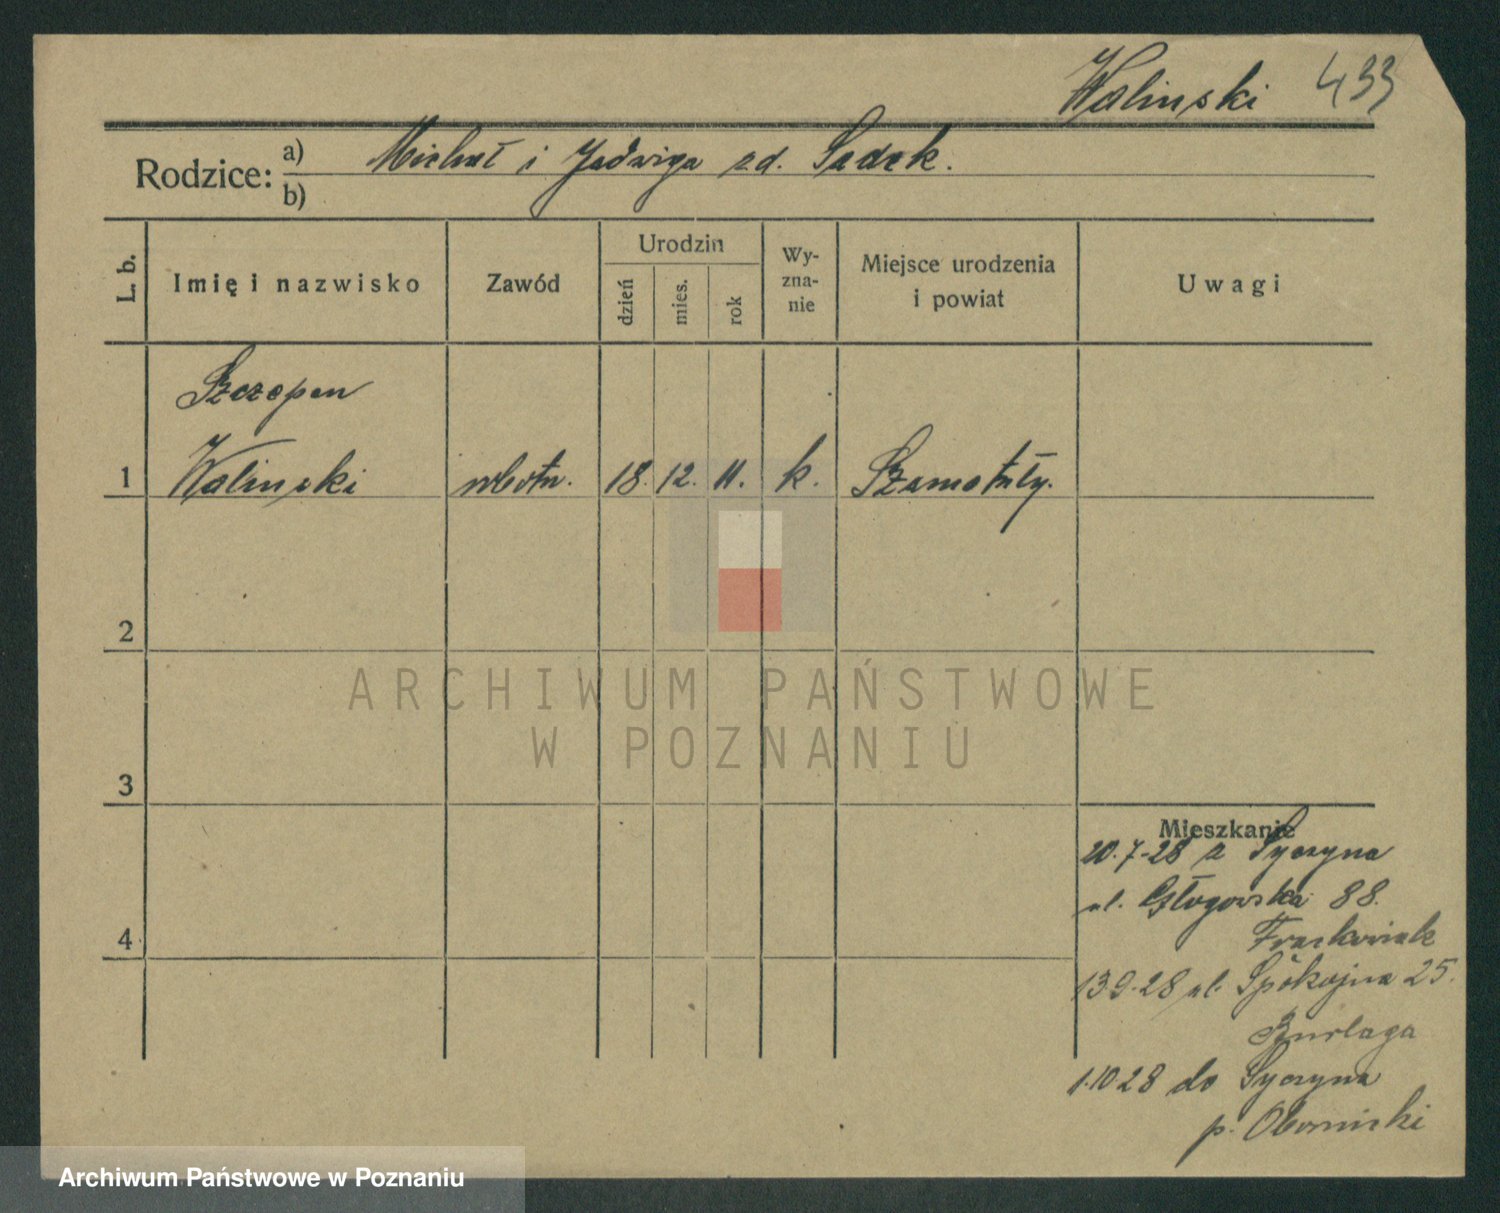 Walinski 433
Rodzice: a) Michał i Jadwiga zd. Sadek.
b)
L. b.
Imię i nazwisko
Zawód
Urodzin
dzień
mies.
rok
Wy-
zna-
nie
Miejsce urodzenia
i powiat
Uwagi
Szczepan
1 Walinski robotn. 18. 12. 11. k. Szamotuły.
2
ARCHIWUM PAŃSTWOWE
W POZNANIU
3
Mieszkanie
20.7-28 z Syczyna
ul. Głogowska 88.
4
Frackowiak
13.9.28 ul. Spokojna 25.
Burlaga
1.10 28 do Syczyna
p. Obornicki
Archiwum Państwowe w Poznaniu